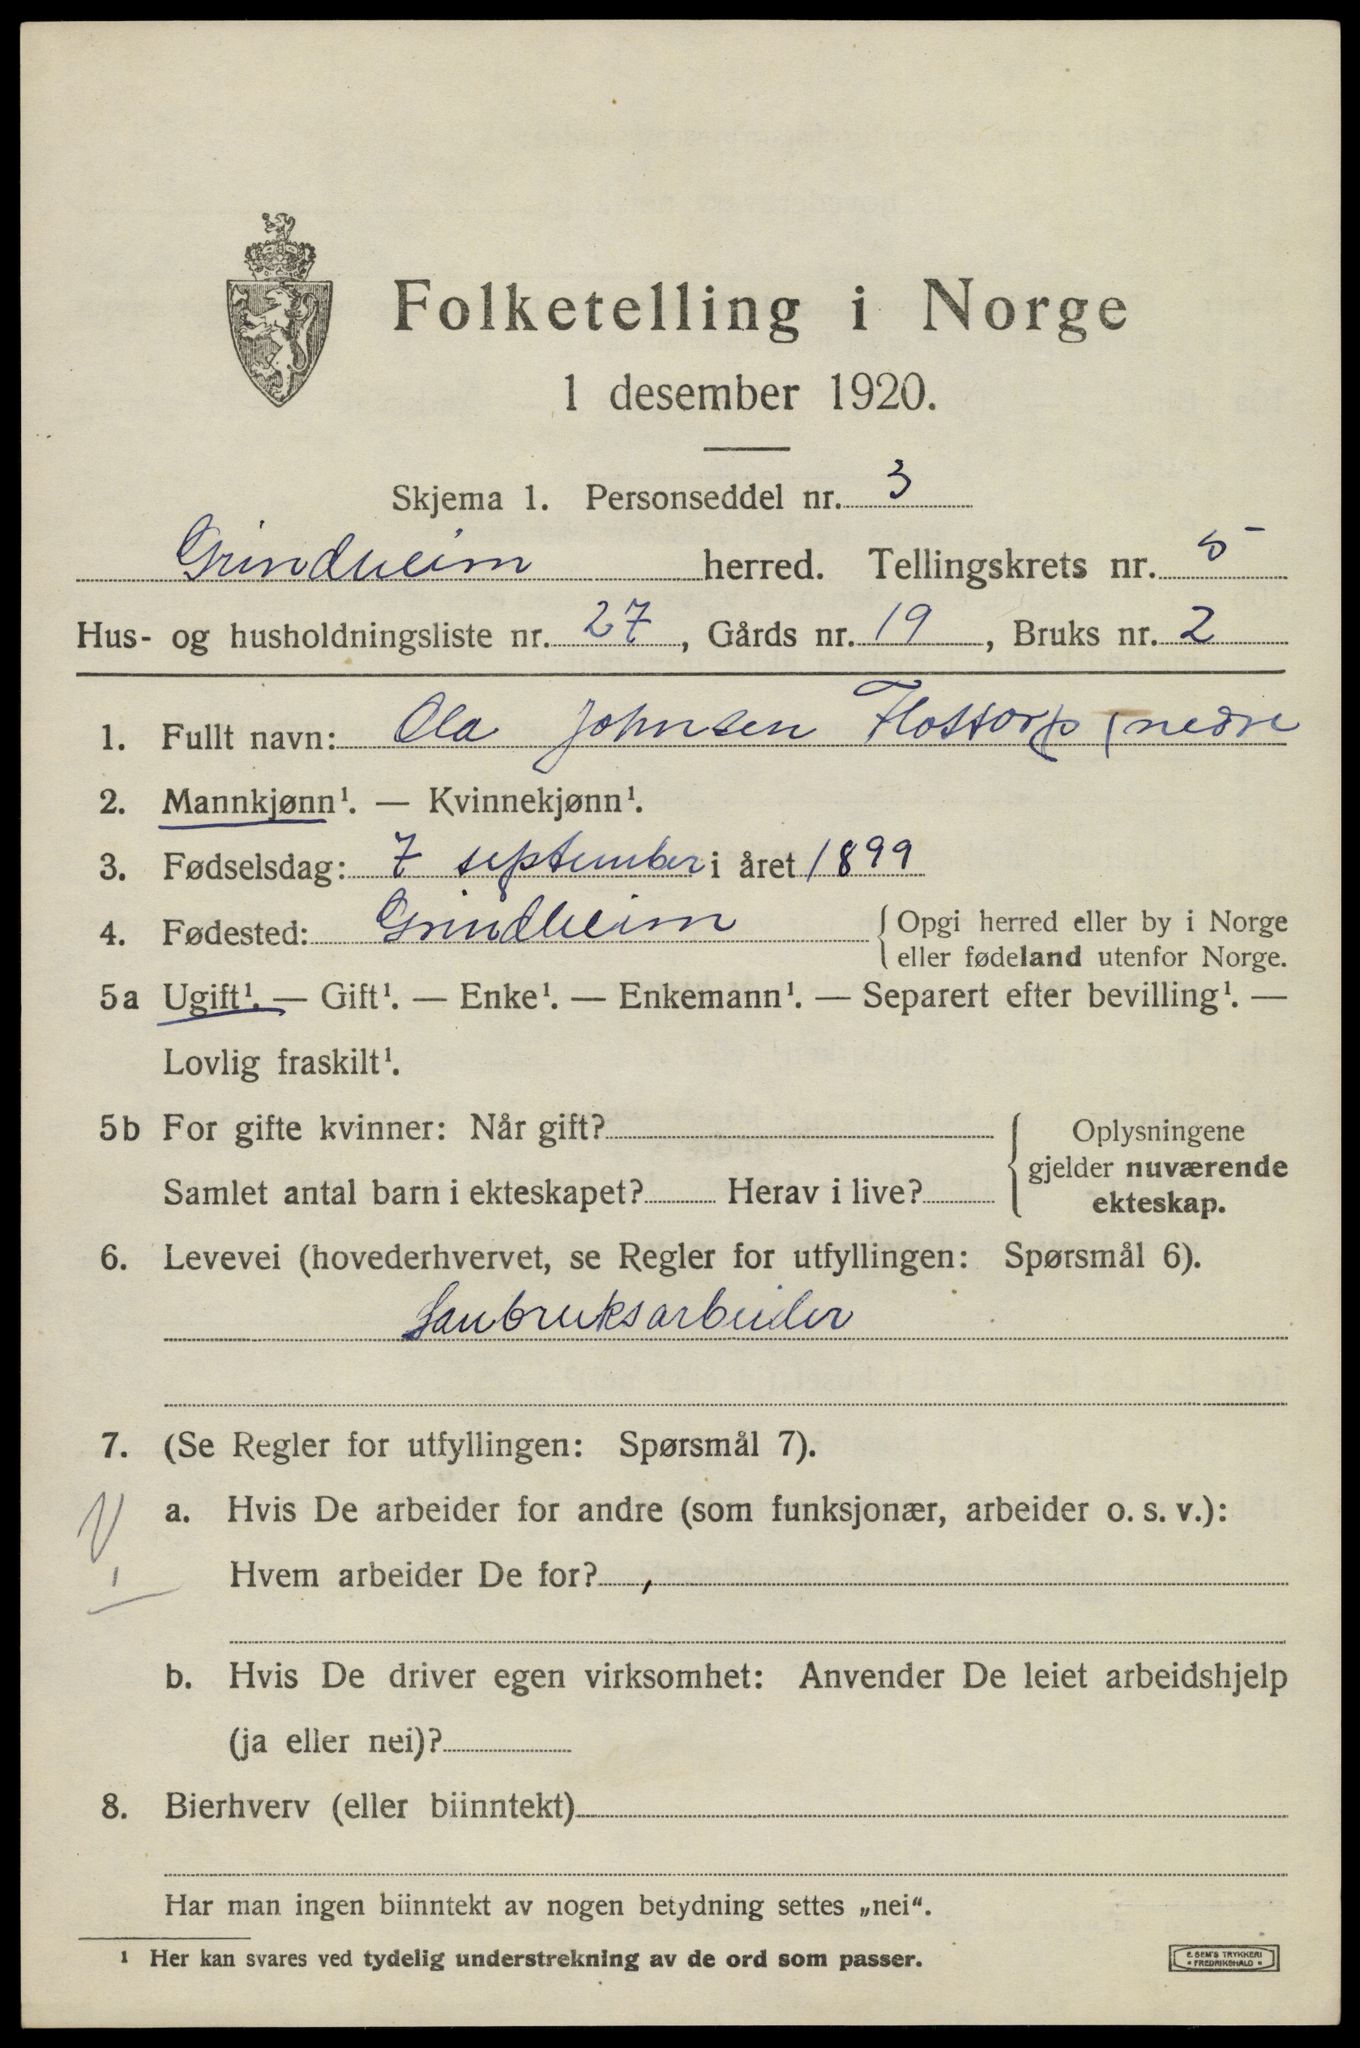 Folketelling i Norge
1 desember 1920.
Skjema 1. Personseddel nr. 3
Grindheim herred. Tellingskrets nr. 5
Hus- og husholdningsliste nr. 27, Gårds nr. 19, Bruks nr. 2
1. Fullt navn: Ola Johnsen Flottorp (nedre
2. Mannkjønn¹. — Kvinnekjønn¹.
3. Fødselsdag: 7 september i året 1899
4. Fødested: Grindheim { Opgi herred eller by i Norge
eller fødeland utenfor Norge.
5a Ugift¹. — Gift¹. — Enke¹. — Enkemann¹. — Separert efter bevilling¹. —
Lovlig fraskilt¹.
5b For gifte kvinner: Når gift?
Samlet antal barn i ekteskapet? Herav i live?
Oplysningene
gjelder nuværende
ekteskap.
6. Levevei (hovederhvervet, se Regler for utfyllingen: Spørsmål 6).
Saubruksarbeider
7. (Se Regler for utfyllingen: Spørsmål 7).
a. Hvis De arbeider for andre (som funksjonær, arbeider o. s. v.):
Hvem arbeider De for?
b. Hvis De driver egen virksomhet: Anvender De leiet arbeidshjelp
(ja eller nei)?
8. Bierhverv (eller biinntekt)
Har man ingen biinntekt av nogen betydning settes „nei“.
¹ Her kan svares ved tydelig understrekning av de ord som passer.
E. SEM'S TRYKKERI
• FREDRIKSHALD •